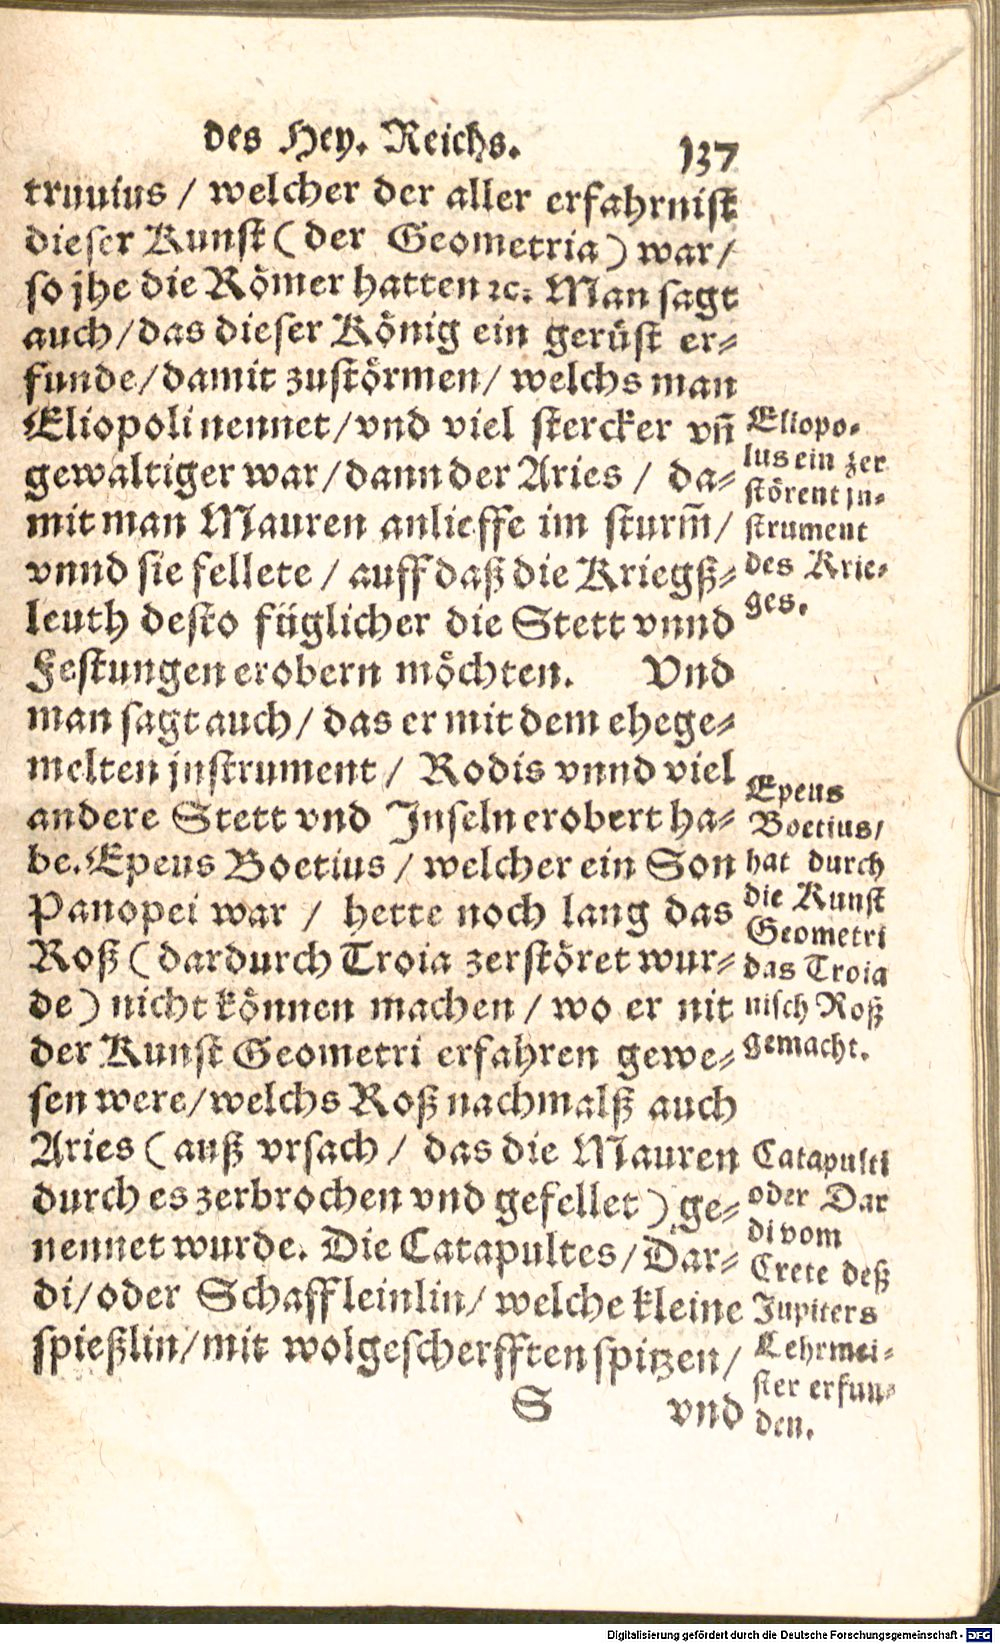 des Hey. Reichs. 137
truuius / welcher der aller erfahrnist
dieser Kunst ( der Geometria ) war /
so jhe die Römer hatten ꝛc. Man sagt
auch / das dieser König ein gerüst er-
funde / damit zustörmen / welchs man
Eliopoli nennet / vnd viel stercker vñ
gewaltiger war / dann der Aries / da-
mit man Mauren anlieffe im sturm̃ /
vnnd sie fellete / auff daß die Kriegß-
leuth desto füglicher die Stett vnnd
Festungen erobern möchten. Vnd
man sagt auch / das er mit dem ehege-
melten jnstrument / Rodis vnnd viel
andere Stett vnd Inseln erobert ha-
be. Epeus Boetius / welcher ein Son
Panopei war / hette noch lang das
Roß ( dardurch Troia zerstöret wur-
de ) nicht können machen / wo er nit
der Kunst Geometri erfahren gewe-
sen were / welchs Roß nachmalß auch
Aries ( auß vrsach / das die Mauren
durch es zerbrochen vnd gefellet ) ge-
nennet wurde. Die Catapultes / Dar-
di / oder Schaffleinlin / welche kleine
spießlin / mit wolgescherfften spitzen /
S vnd
Eliopo-
lus ein zer
störent jn-
strument
des Krie-
ges.
Epeus
Boetius /
hat durch
die Kunst
Geometri
das Troia
nisch Roß
gemacht.
Catapulti
oder Dar
di vom
Crete deß
Jupiters
Lehrmei-
ster erfun-
den.
Digitalisierung gefördert durch die Deutsche Forschungsgemeinschaft - DFG